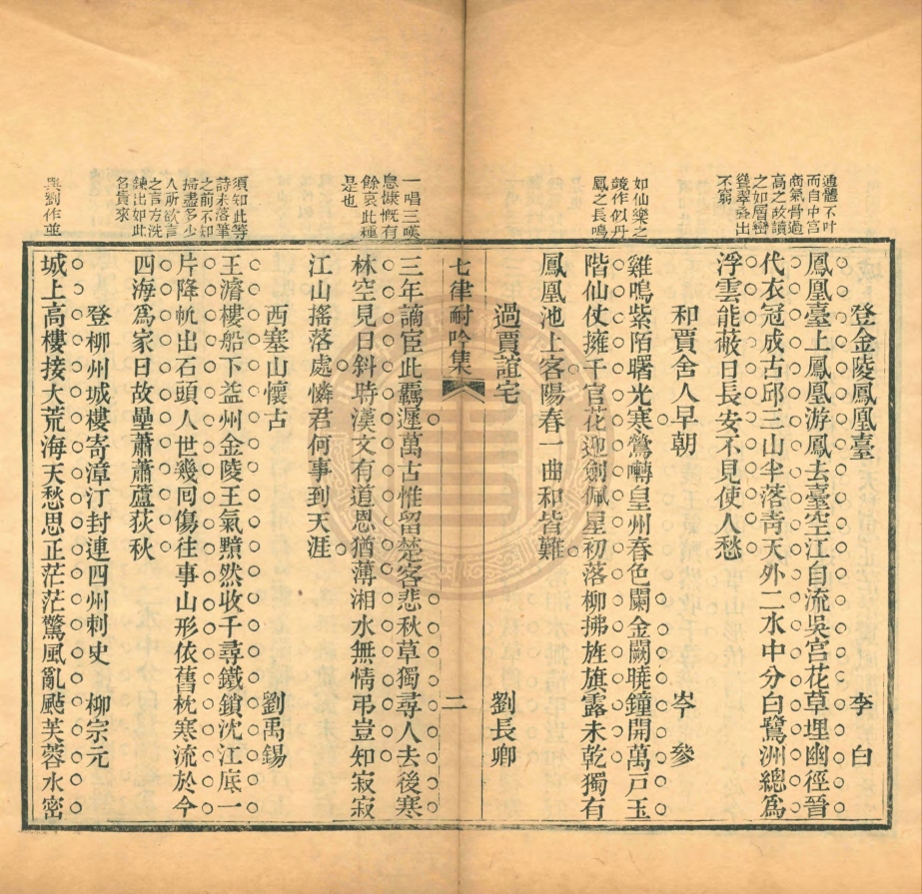 通體不叶
而自中宮
商氣骨過
高之故讀
之如層巒
聳翠叠出
不窮
登金陵鳳凰臺 李白
鳳凰臺上鳳凰游鳳去臺空江自流吳宮花草埋幽徑晉
代衣冠成古邱三山半落靑天外二水中分白鷺洲總爲
浮雲能蔽日長安不見使人愁
如仙樂之
鏡作似丹
鳳之長鳴
和賈舍人早朝 岑參
雞鳴紫陌曙光寒鶯囀皇州春色闌金闕曉鐘開萬戶玉
階仙仗擁千官花迎劍佩星初落柳拂旌旗露未乾獨有
鳳凰池上客陽春一曲和皆難
過賈誼宅 劉長卿
七律耐吟集 二
一唱三嘆
息慷慨有
餘哀此種
是也
三年謫宦此羈遲萬古惟留楚客悲秋草獨尋人去後寒
林空見日斜時漢文有道恩猶薄湘水無情弔豈知寂寂
江山搖落處憐君何事到天涯
須知此等
詩未落筆
之前不知
掃盡多少
人所欲言
之言方洗
鍊出如此
名貴來
西塞山懷古 劉禹錫
王濬樓船下益州金陵王氣黯然收千尋鐵鎖沈江底一
片降帆出石頭人世幾囘傷往事山形依舊枕寒流於今
四海爲家日故壘蕭蕭蘆荻秋
與劉作並
登柳州城樓寄漳汀封連四州刺史 柳宗元
城上高樓接大荒海天愁思正茫茫驚風亂颭芙蓉水密